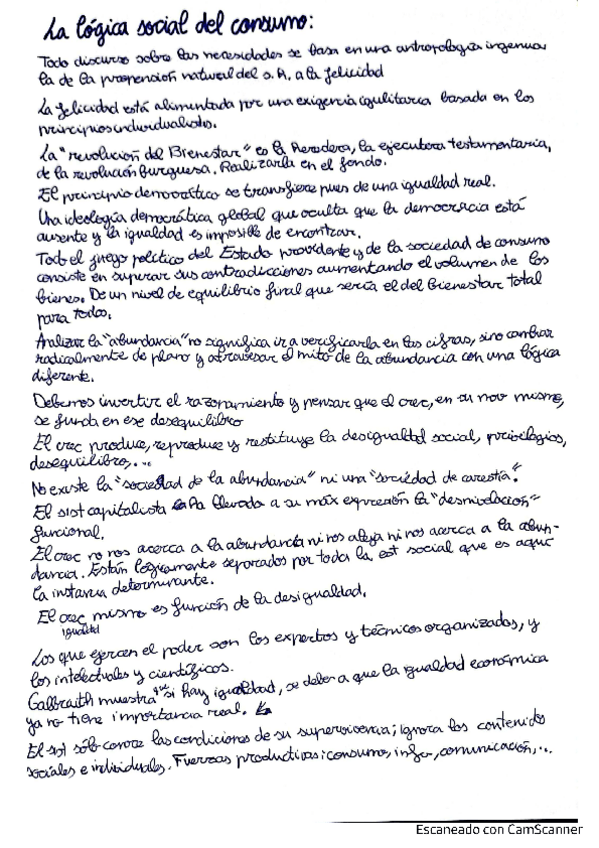 La lógica social del consumo:
Todo discurso sobre las necesidades se basa en una antropología ingenua
la de la propensión natural del s. h. a la felicidad
La felicidad está alimentada por una exigencia igulitaria basada en los
principios individualistas.
La "revolución del Bienestar" es la heredera, la ejecutora testamentaria,
de la revolución burguesa. Realizarla en el fondo.
El principio democrático se transfiere pues de una igualdad real.
Una ideología democrática global que oculta que la democracia está
ausente y la igualdad es imposible de encontrar.
Todo el juego político del Estado providente y de la sociedad de consumo
consiste en superar sus contradicciones aumentando el volumen de los
bienes. De un nivel de equilibrio final que sería el del Bienestar total
para todos.
Analizar la "abundancia" no significa ir a verificarla en las cifras, sino cambiar
radicalmente de plano y atravesar el mito de la abundancia con una lógica
diferente.
Debemos invertir el razonamiento y pensar que el crec, en su mov mismo,
se funda en ese desequilibro
El crec produce, reproduce y restituye la desigualdad social, privilegios,
desequilibro,...
No existe la "sociedad de la abundancia" ni una "sociedad de carestía".
El sist capitalista ha llevado a su máx expresión la "desnivelación"
funcional.
El crec no nos acerca a la abundancia ni nos aleja ni nos acerca a la abun-
dancia. Están lógicamente separados por toda la est social que es aquí
la instancia determinante.
El crec mismo es función de la desigualdad.
igualdad
Los que ejercen el poder son los expertos y técnicos organizados, y
los intelectuales y científicos.
Galbraith muestra que si hay igualdad, se debe a que la igualdad económica
ya no tiene importancia real.
El sist sólo conoce las condiciones de su supervivencia; ignora los contenidos
sociales e individuales. Fuerzas productivas: consumo, infor, comunicación,...
Escaneado con CamScanner